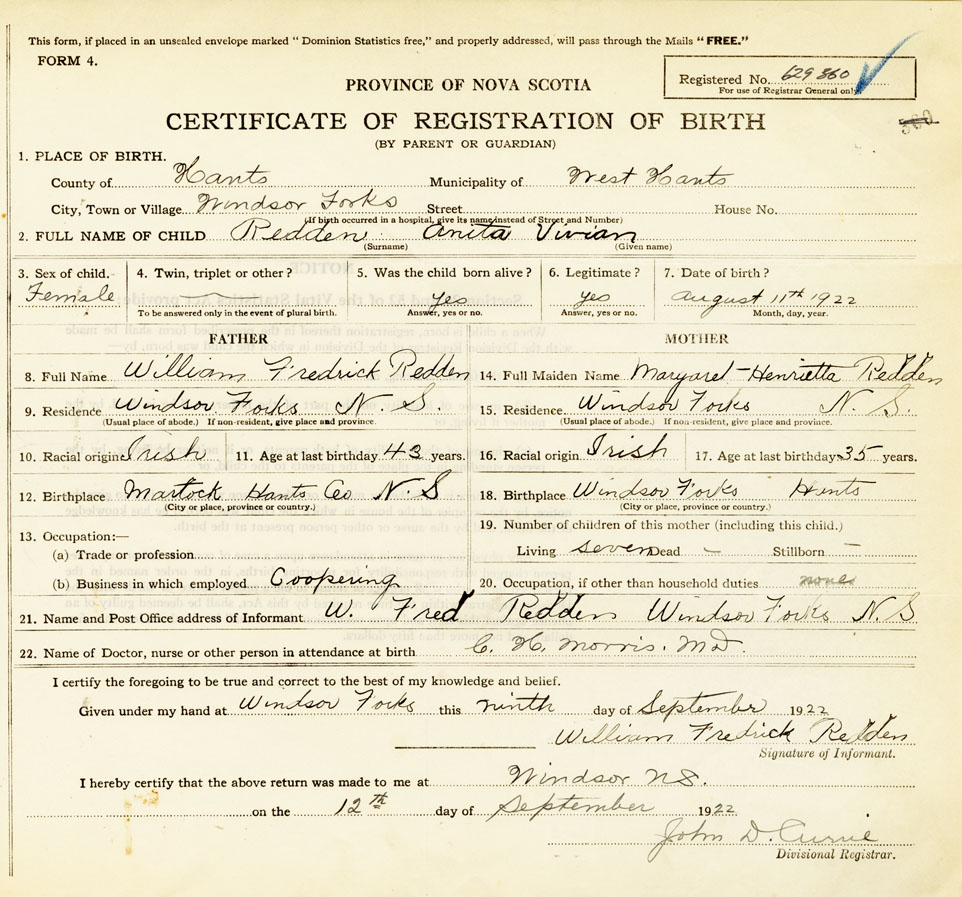 This form, if placed in an unsealed envelope marked "Dominion Statistics free," and properly addressed, will pass through the Mails "FREE."
FORM 4.
PROVINCE OF NOVA SCOTIA
Registered No. 629860
For use of Registrar General only
CERTIFICATE OF REGISTRATION OF BIRTH
(BY PARENT OR GUARDIAN)
1. PLACE OF BIRTH.
County of Hants Municipality of West Hants
City, Town or Village Windsor Forks Street House No.
(If birth occurred in a hospital, give its name instead of Street and Number)
2. FULL NAME OF CHILD Redden Anita Vivian
(Surname) (Given name)
3. Sex of child. 4. Twin, triplet or other? 5. Was the child born alive? 6. Legitimate? 7. Date of birth?
Female yes yes August 11th 1922
To be answered only in the event of plural birth. Answer, yes or no. Answer, yes or no. Month, day, year.
FATHER MOTHER
8. Full Name William Fredrick Redden 14. Full Maiden Name Margaret Henrietta Redden
9. Residence Windsor Forks N. S. 15. Residence Windsor Forks N. S.
(Usual place of abode.) If non-resident, give place and province. (Usual place of abode.) If non-resident, give place and province.
10. Racial origin Irish 11. Age at last birthday 43 years. 16. Racial origin Irish 17. Age at last birthday 35 years.
12. Birthplace Martock Hants Co N. S 18. Birthplace Windsor Forks Hants
(City or place, province or country.) (City or place, province or country.)
13. Occupation:— 19. Number of children of this mother (including this child.)
(a) Trade or profession Living seven Dead - Stillborn -
(b) Business in which employed Coopering 20. Occupation, if other than household duties none
21. Name and Post Office address of Informant W. Fred Redden Windsor Forks N. S
22. Name of Doctor, nurse or other person in attendance at birth C. H. Morris. M.D.
I certify the foregoing to be true and correct to the best of my knowledge and belief.
Given under my hand at Windsor Forks this ninth day of September 1922
William Fredrick Redden
Signature of Informant.
I hereby certify that the above return was made to me at Windsor N.S.
on the 12th day of September 1922
John D. Currie
Divisional Registrar.